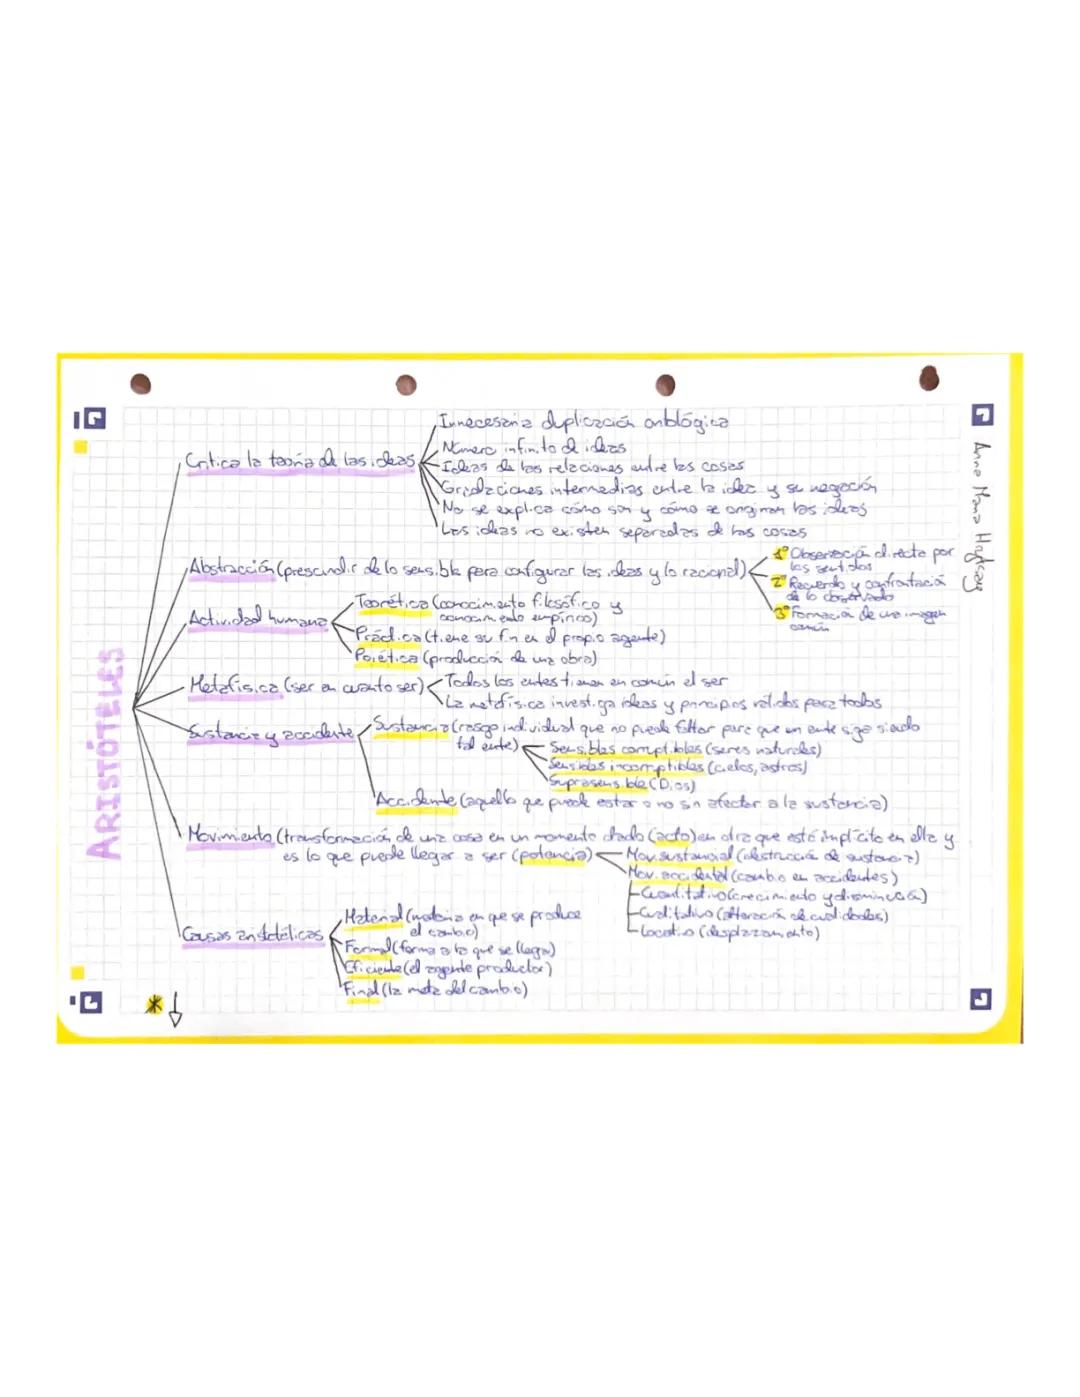 ARISTÓTELES
Critica la teoría de las ideas
Innecesaria duplicación ontológica
Número infinito de ideas
Ideas de las relaciones entre las cosas
Gradaciones intermedias entre la idea y su negación
No se explica cómo son y cómo se originan las ideas
Las ideas no existen separadas de las cosas
Abstracción (prescindir de lo sensible para configurar las ideas y lo racional)
1º Observación directa por
los sentidos
2º Recuerdo y confrontación
de lo observado
3º Formación de una imagen
común
Actividad humana
Teorética (conocimiento filosófico y
conocimiento empírico)
Práctica (tiene su fin en el propio agente)
Poiética (producción de una obra)
Metafísica (ser en cuanto ser)
Todos los entes tienen en común el ser
La metafísica investiga ideas y principios válidos para todos
Sustancia y accidente
Sustancia (rasgo individual que no puede faltar para que un ente siga siendo
tal ente)
Sensibles corruptibles (seres naturales)
Sensibles incorruptibles (cielos, astros)
Suprasensible (Dios)
Accidente (aquello que puede estar o no sin afectar a la sustancia)
Movimiento (transformación de una cosa en un momento dado (acto) en otra que esté implícito en ella y
es lo que puede llegar a ser (potencia)
Mov. sustancial (destrucción de sustancia)
Mov. accidental (cambio en accidentes)
Cuantitativo (crecimiento y disminución)
Cualitativo (alteración de cualidades)
Locativo (desplazamiento)
Causas aristotélicas
Material (materia en que se produce
el cambio)
Formal (forma a la que se llega)
Eficiente (el agente productor)
Final (la meta del cambio)
*